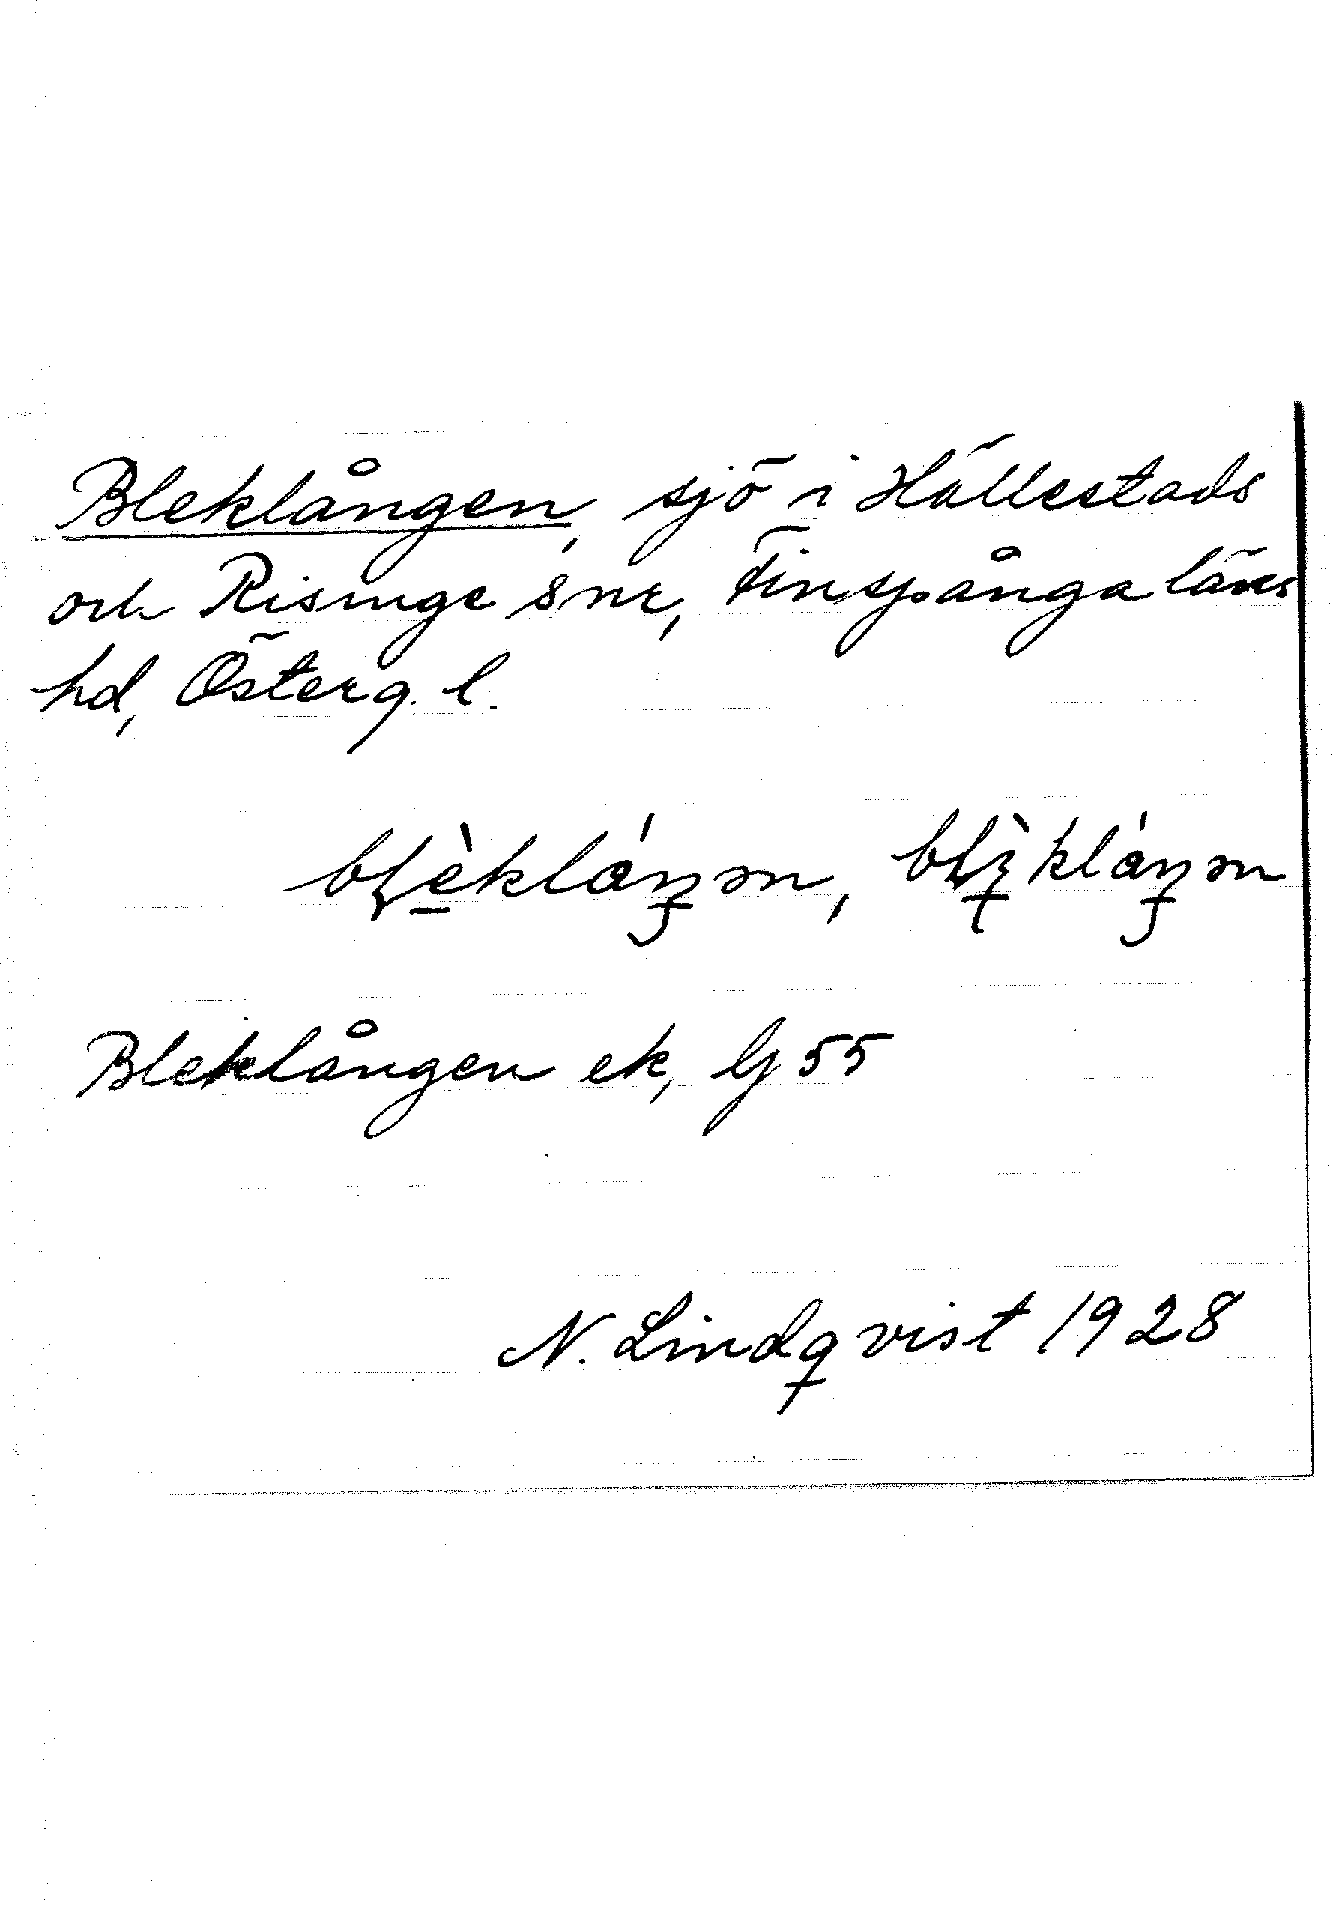 Bleklången, sjö i Hällestads
och Risinge snr, Finspånga läns
hd, Österg. l.
Bleklången ek, G 55
N. Lindqvist 1928